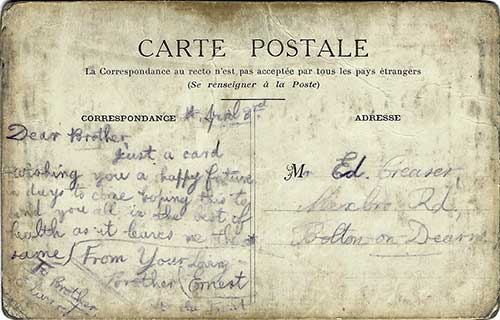 CARTE POSTALE
La Correspondance au recto n'est pas acceptée par tous les pays étrangers
(Se renseigner à la Poste)
CORRESPONDANCE
April 3rd
ADRESSE
Dear Brother
Just a card
wishing you a happy future
in days to come hoping this to
find you all in the best of
health as it leaves me the
same
From Your Loving
Brother Ernest
To Brother
Edward
Mr Ed. Creaser,
Mexbro Rd,
Bolton on Dearne